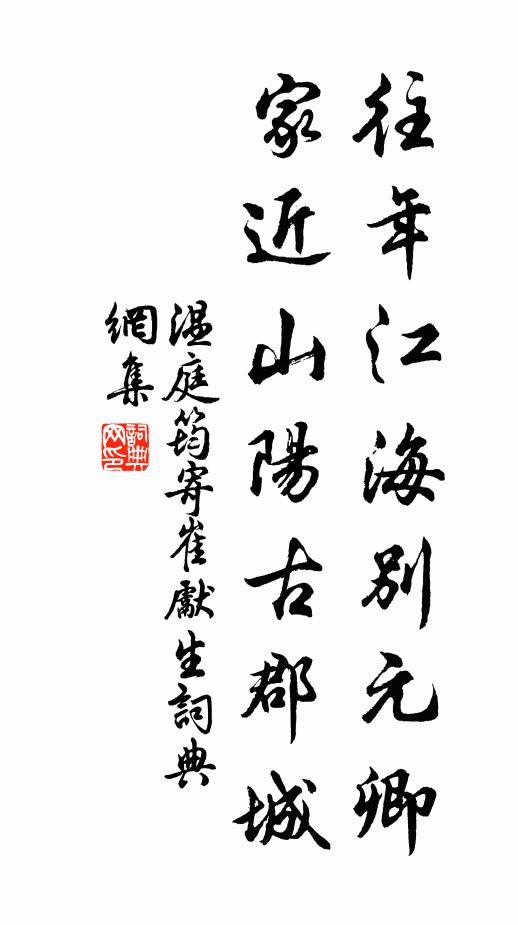 往年江海別元卿
家近山陽古郡城
溫庭筠寄崔獻生詞典
網集
詞典網印